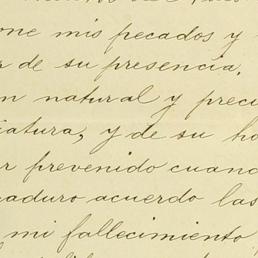 one mis pecados y
r de su presencia.
n natural y preci
iatura, y de su ho
r prevenido cuand
maduro acuerdo las
mi fallecimiento